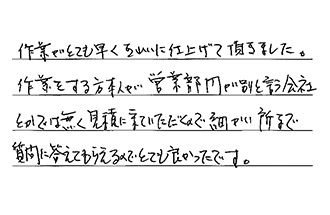 作業がとても早くきれいに仕上げて頂きました。
作業をする方本人が営業部門が別と言う会社
とかでは無く見積に来ていただくので細かい所まで
質問に答えてもらえるのでとても良かったです。